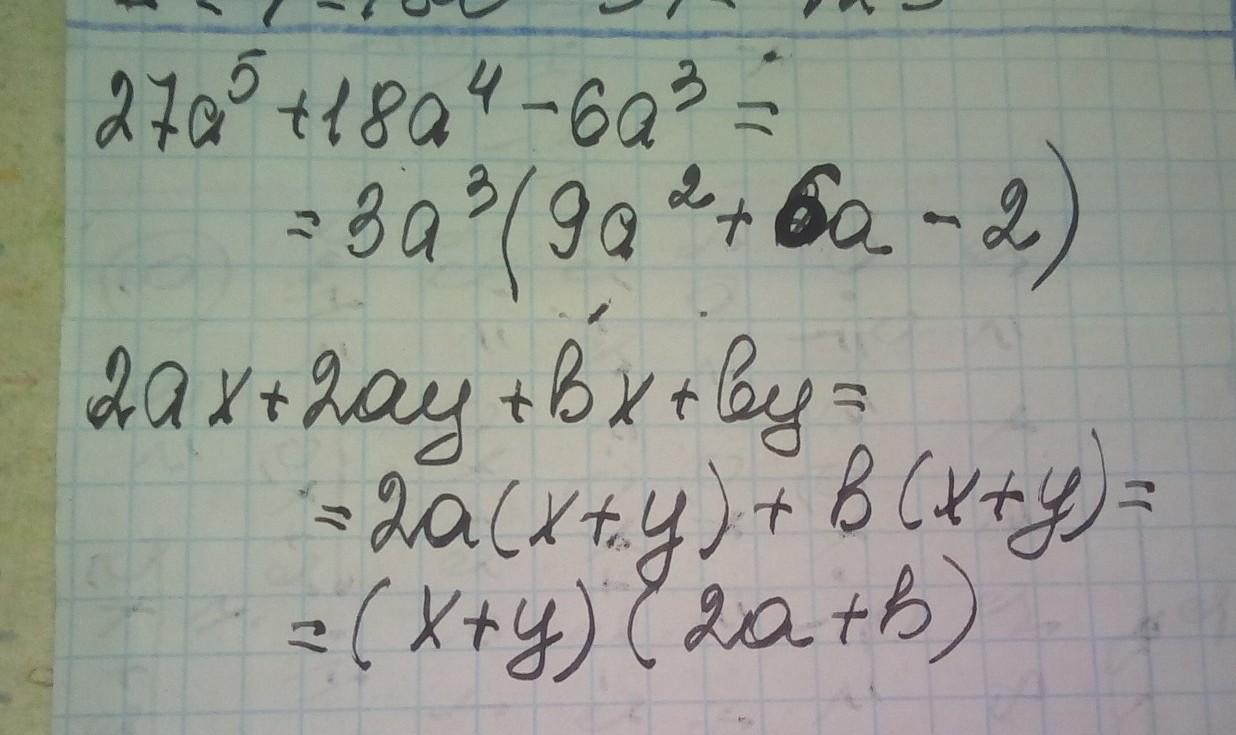 27a⁵ + 18a⁴ - 6a³ =
= 3a³(9a² + 6a - 2)
2ax + 2ay + bx + by =
= 2a(x + y) + b(x + y) =
= (x + y)(2a + b)